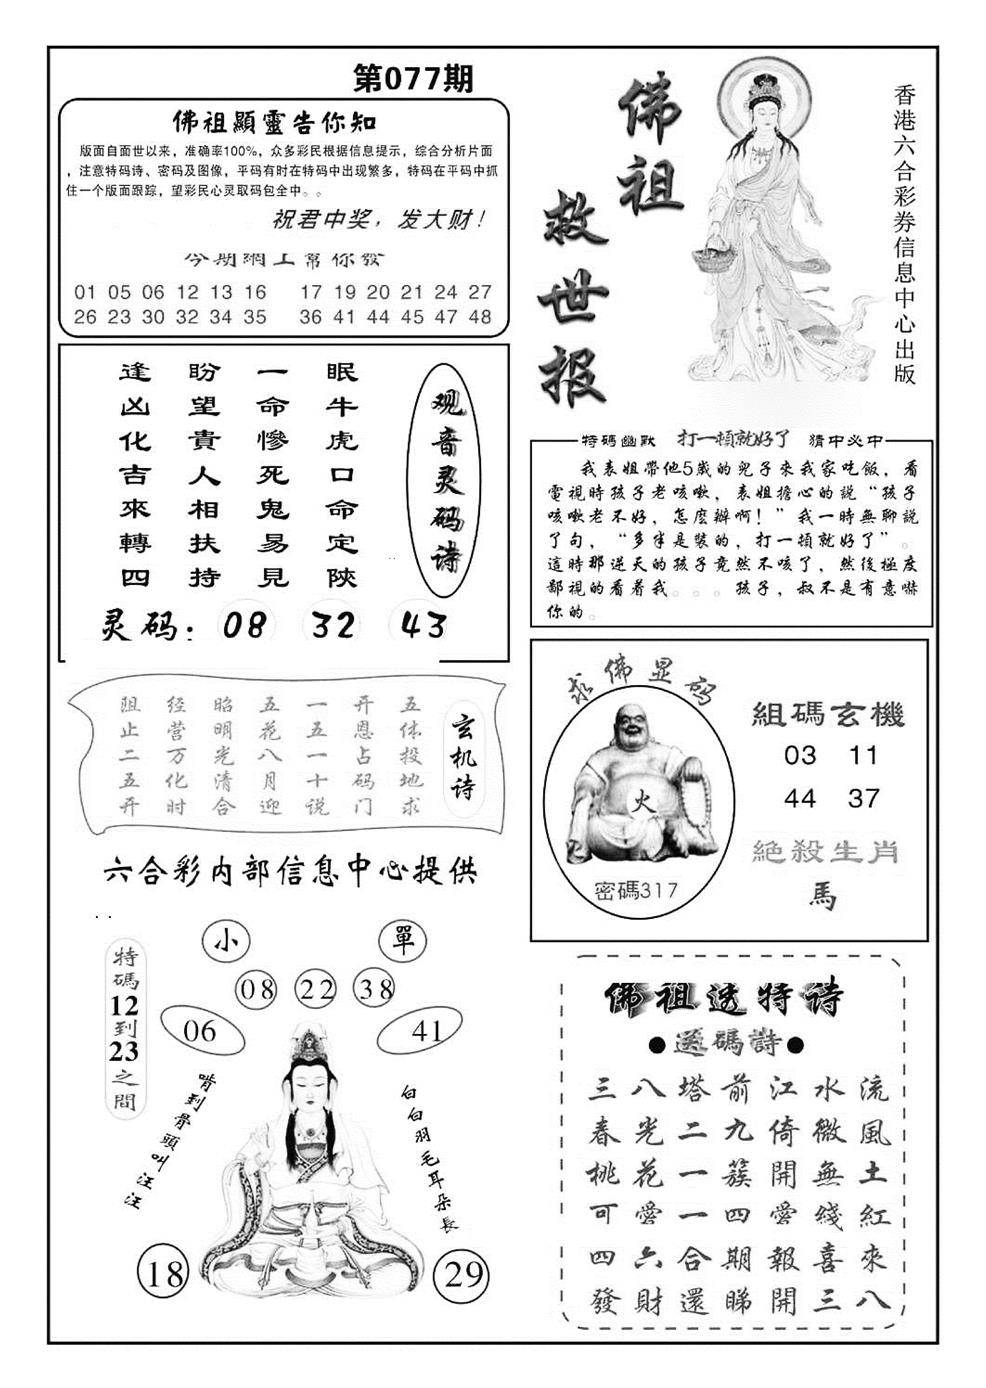 第077期
佛祖顯靈告你知
版面自面世以来，准确率100%，众多彩民根据信息提示，综合分析片面
，注意特码诗、密码及图像，平码有时在特码中出现繁多，特码在平码中抓
住一个版面跟踪，望彩民心灵取码包全中。。
祝君中奖，发大财！
今期網工幫你發
01 05 06 12 13 16 17 19 20 21 24 27
26 23 30 32 34 35 36 41 44 45 47 48
佛祖
救世报
香港六合彩券信息中心出版
观音灵码诗
眠牛虎口命定陝
一命慘死鬼易見
盼望貴人相扶持
逢凶化吉來轉四
灵码：08 32 43
特碼幽默 打一頓就好了 猜中必中
我表姐帶他5歲的兒子來我家吃飯，看
電視時孩子老咳嗽，表姐擔心的說“孩子
咳嗽老不好，怎麼辦啊！”我一時無聊説
了句，“多半是裝的，打一頓就好了”。
這時那逆天的孩子竟然不咳了，然後極度
鄙視的看着我。。。孩子，叔不是有意嚇
你的。
玄机诗
五体投地求
开恩占码门
一五一十说
五花八月迎
昭明光清合
经营万化时
阻止二五开
六合彩内部信息中心提供
求佛显码
火
密碼317
組碼玄機
03 11
44 37
絕殺生肖
馬
小 單
08 22 38
06 41
特碼12到23之間
啃到骨頭叫汪汪
白白羽毛耳朵長
18 29
佛祖透特诗
●透碼詩●
三八塔前江水流
春光二九倚微風
桃花一簇開無土
可愛一四愛綫紅
四六合期報喜來
發財還睇開三八